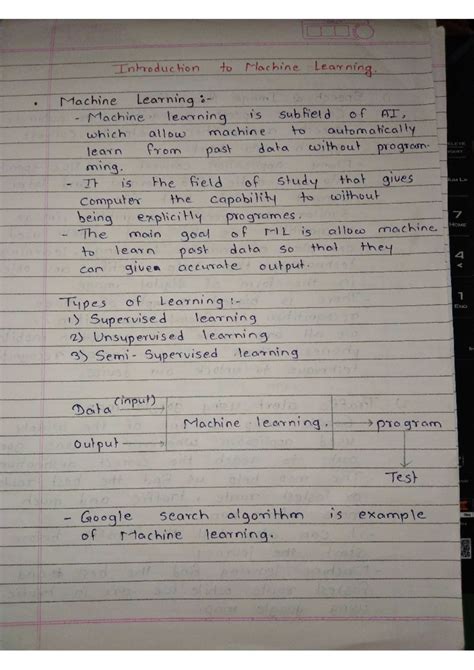 Introduction to Machine Learning.
• Machine Learning :-
- Machine learning is subfield of AI,
which allow machine to automatically
learn from past data without program-
ming.
- It is the field of study that gives
computer the capability to without
being explicitly programes.
- The main goal of ML is allow machine
to learn past data so that they
can given accurate output.
Types of Learning :-
1) Supervised learning
2) Unsupervised learning
3) Semi-Supervised learning
Data (input)
Machine learning. program
output
Test
- Google search algorithm is example
of Machine learning.
7
HOME
4
1
END